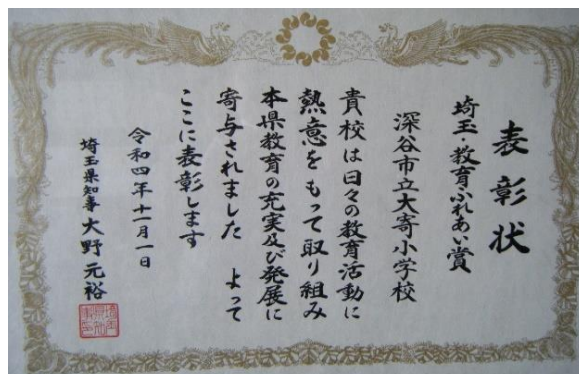 表彰状
埼玉・教育ふれあい賞
深谷市立大寄小学校
貴校は日々の教育活動に
熱意をもって取り組み
本県教育の充実及び発展に
寄与されました よって
ここに表彰します
令和四年十一月一日
埼玉県知事 大野元裕